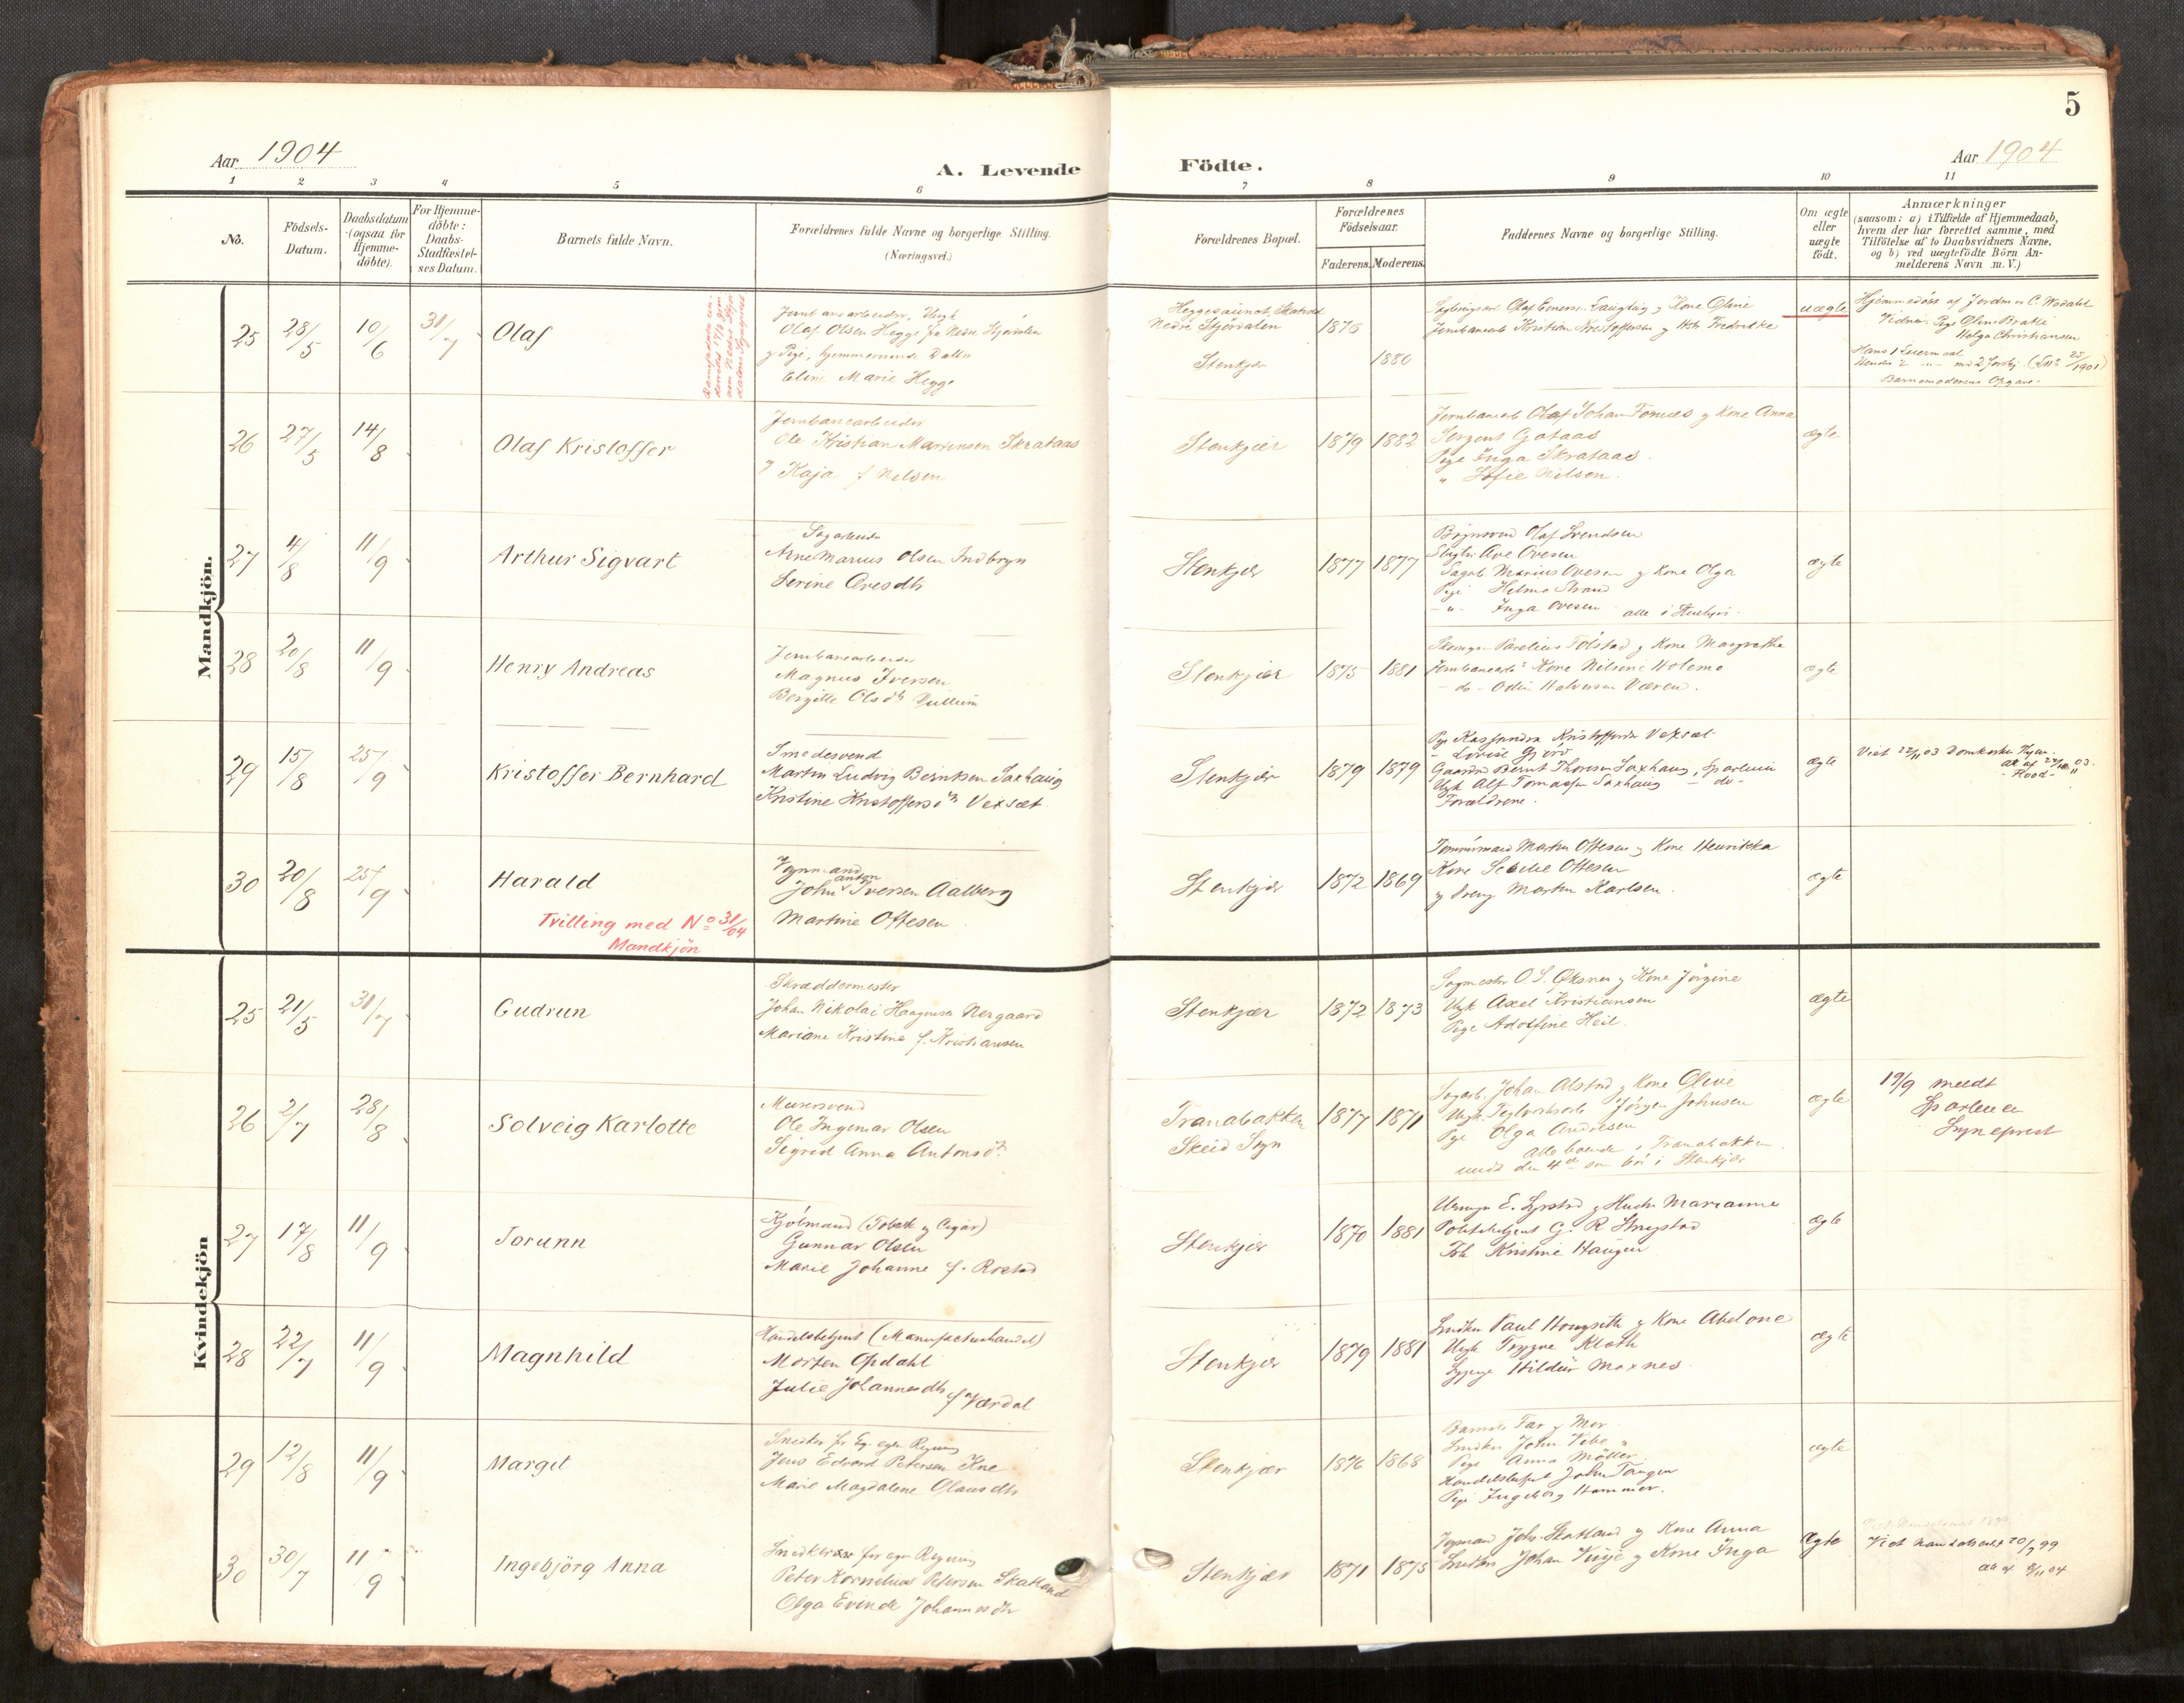 5
Aar 1904
A. Levende Födte.
Aar 1904
1 2 3 4 5 6 7 8 9 10 11
No.
Födsels-
Datum.
Daabsdatum
(ogsaa for
Hjemme-
döbte).
For Hjemme-
döbte:
Daabs-
Stadfæstel-
ses Datum.
Barnets fulde Navn.
Forældrenes fulde Navne og borgerlige Stilling.
(Næringsvei.)
Forældrenes Bopæl.
Forældrenes
Födselsaar.
Faderens. Moderens.
Faddernes Navne og borgerlige Stilling.
Om ægte
eller
uægte
födt.
Anmærkninger
(saasom: a) i Tilfælde af Hjemmedaab,
hvem der har forrettet samme, med
Tilföielse af to Daabsvidners Navne.
og b) ved uægtefödte Börn An-
melderens Navn m. V.)
Mandkjön.
25 28/5 10/6 31/7 Olaf
Jernbanearbeider, Ungk
Olaf Olsen Hegge fra Nedre Stjørdalen
og Pige, hjemmeværende Datter
Eline Marie Hegge
Nedre Stjørdalen 1876
Stenkjær 1880
Jernbanearb Kristian Kristoffersen og Hstr Fredrikke
uægte
Hjemmedøbt af Jordm C. Wodahl
Vidner: Pige Oline Brakli
Helga Christiansen
Hans 1 Leiermaal
Barnemoderens Opgave.
26 27/5 14/8 Olaf Kristoffer
Jernbanearbeider
Ole Kristian Martinsen Skrataas
og Kaja f. Nilsen
Stenkjær 1879 1882
Jernbanearb Olaf Johan Fornæs og Kone Anna
Sergent Gotaas
Pige Inga Skrataas.
" Sofie Nilsen.
ægte
27 4/8 11/9 Arthur Sigvart
Sagarbeider
Arne Marius Olsen Indbryn
Serine Ovesdtr
Stenkjær 1877 1877
Olaf Svendsen
Ave Ovesen
Sagarb Marius Ovesen og Kone Olga
Pige Helma Strand
- " - Inga Ovesen alle i Stenkjær.
ægte
28 20/8 11/9 Henry Andreas
Jernbanearbeider
Magnus Iversen
Bergitte Olsdtr
Stenkjær 1875 1881
Parelius Følstad og Kone Margrethe
Jernbanearb Kone Nilsine Holemo
- do - Odin Halvorsen Væren.
ægte
29 15/8 25/9 Kristoffer Bernhard
Smedesvend
Martin Ludvig Berntsen Saxhaug
Kristine Kristoffersdtr Vexsæt
Stenkjær 1879 1879
Pige Kassandra Kristoffersdtr Vexsæt
- Lovise
Gaardbr Bernt Thoresen Saxhaug, Sparbuen
Ungk Alf Tomassen Saxhaug - do -
Forældrene.
ægte
Viet 22/11 03 Domkirken
30 20/8 25/9 Harald
Tvilling med No 31/04
Mandkjön
Vognmand
John Anton Iversen Aalberg
Martine Ottesen
Stenkjær 1872 1869
Tømmermand Morten Ottesen og Kone Henrikka
Kone Secilie Ottesen
og Dreng Morten Karlsen.
ægte
Kvindekjön
25 21/5 31/7 Gudrun
Skræddermester
Johan Nikolai Haagensen Nergaard
Mariane Kristine f. Kristiansen
Stenkjær 1872 1873
Sagmester O. S. Øksnes og Kone Jørgine
Ungk Axel Kristiansen
Pige Adolfine Heil.
ægte
26 2/7 28/8 Solveig Karlotte
Murersvend
Ole Ingemar Olsen
Sigrid Anna Antonsdtr
Tranabakken
Skeid Sogn
1877 1871
Sagarb. Johan Alstad og Kone Olive
Ungk Teglverksarb Jørgen Johnsen
Pige Olga Andresen
alle boende i Tranabakken
undt den 4de som bor i Stenkjær
ægte
19/9 meldt
Sparbuen
Sogneprest
27 17/8 11/9 Jorunn
Kjøbmand (Tobak og Cigar)
Gunnar Olsen
Marie Johanne f. Rostad
Stenkjær 1870 1881
Urmager E. Lyrstad og Hustru Marianne
Politibetjent G. R.
Frk Kristine Haugen
ægte
28 22/7 11/9 Magnhild
Handelsbetjent (Manufacturhandel)
Morten Opdahl
Julie Johannesdtr f Værdal
Stenkjær 1879 1881
Snedker Paul Hougseth og Kone Abelone
Ungk Trygve Kloth
Sypige Hildur Moxnes
ægte
29 12/8 11/9 Margit
Snedker for egen Regning
Jens Edvard Petersen Kne
Marie Magdalene Olausdtr
Stenkjær 1876 1868
Barnets Far og Mor
Snedker John Vibe
Pige Anna Möller
Handelsbetjent John Tangen
Pige Ingeborg Hammer.
ægte
30 30/7 11/9 Ingebjörg Anna
Snedker for egen Regning
Peter Kornelius Petersen Skatland
Olga Evinde Johannesdtr
Stenkjær 1871 1875
Vognmand Johs. Skatland og Kone Anna
Snedker Johan Vinje og Kone Inga
Ægte